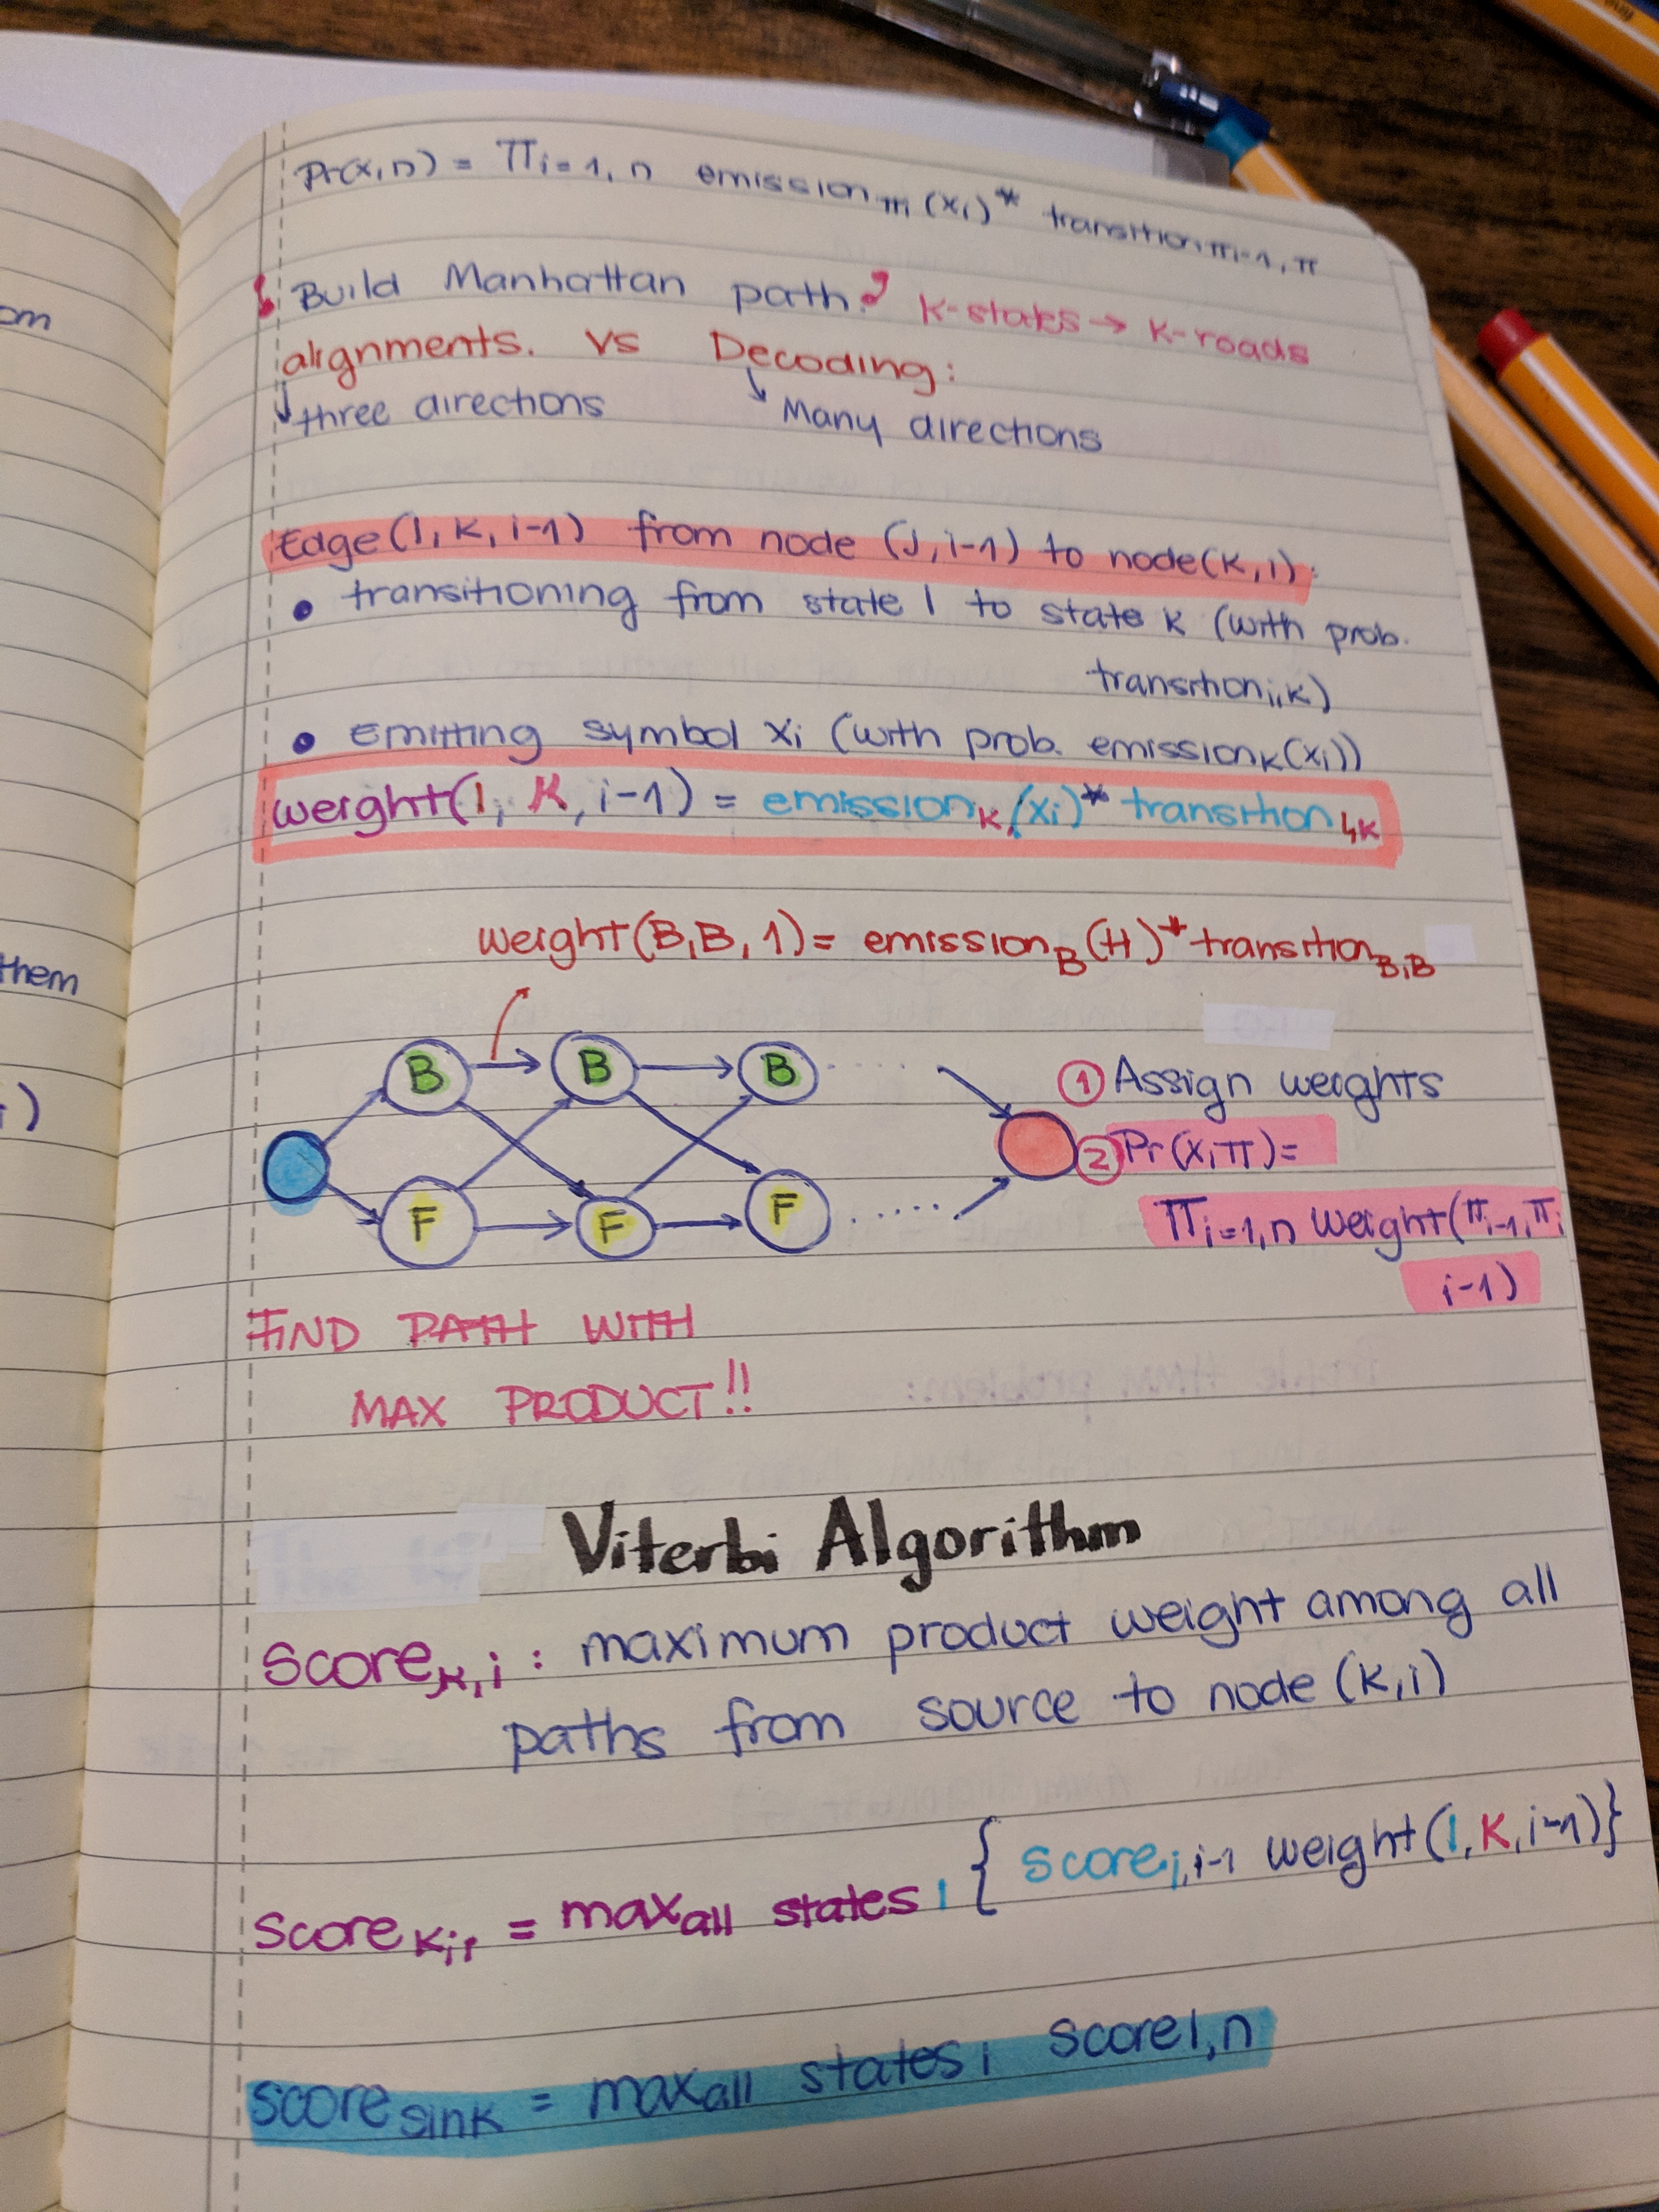 om
them
)
Pr(x,n) = Πi=1,n emission πi (xi)* transition πi-1,π
Build Manhattan path? K-states → K-roads
alignments. vs Decoding:
↓three directions ↘ Many directions
Edge(l, K, i-1) from node (J, i-1) to node(K, i):
• transitioning from state l to state K (with prob.
transition i,K)
• Emitting symbol xi (with prob. emissionK(xi))
weight(l, K, i-1) = emissionK(xi)* transition l,K
weight(B,B,1) = emissionB(H)* transitionB,B
B → B → B ..... ① Assign weights
② Pr(x,π)=
F → F → F ..... Πi=1,n weight(πi-1,πi
i-1)
FIND PATH WITH
MAX PRODUCT!!
Viterbi Algorithm
ScoreK,i : maximum product weight among all
paths from source to node (K,i)
ScoreK,i = max all states l { score j,i-1 weight(l,K,i-1)}
Score sink = max all states i Score l,n